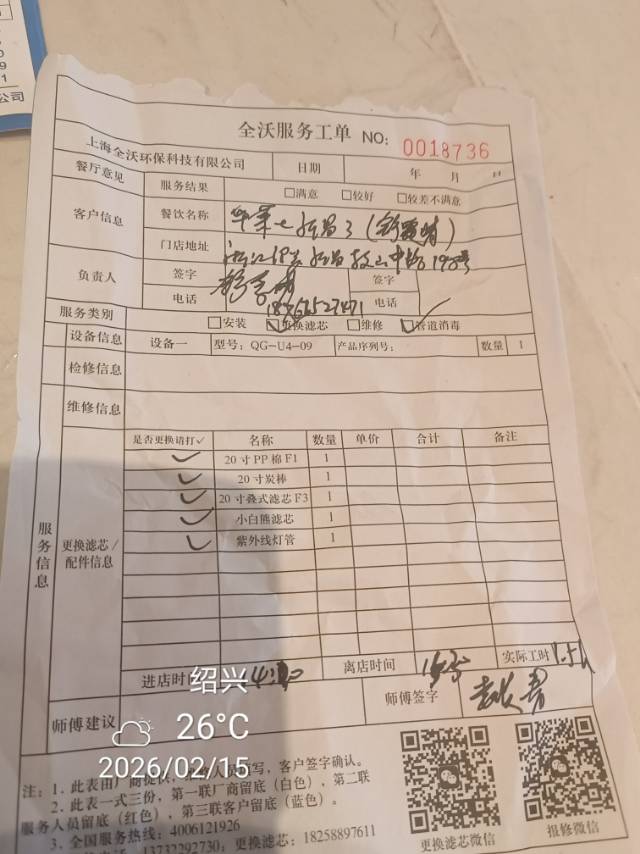 0
9
1
公司
全沃服务工单 NO: 0018736
上海全沃环保科技有限公司 日期 年 月 日
餐厅意见 服务结果 □满意 □较好 □较差不满意
客户信息 餐饮名称
门店地址 198号
负责人 签字 签字
电话 电话
服务类别 □安装 ☑更换滤芯 □维修 ☑管道消毒
设备信息 设备一 型号: QG-U4-09 产品序列号: 数量 1
检修信息
维修信息
服务信息
更换滤芯/配件信息
是否更换请打✓ 名称 数量 单价 合计 备注
✓ 20寸PP棉F1 1
✓ 20寸炭棒 1
✓ 20寸叠式滤芯F3 1
✓ 小白熊滤芯 1
✓ 紫外线灯管 1
进店时 离店时间 实际工时 1.5h
师傅建议 师傅签字
绍兴
26°C
2026/02/15
注: 1. 此表由厂商提供, 写, 客户签字确认。
2. 此表一式三份, 第一联厂商留底(白色), 第二联
服务人员留底(红色), 第三联客户留底(蓝色)。
3. 全国服务热线: 4006121926
13732292730; 更换滤芯: 18258897611
更换滤芯微信
报修微信